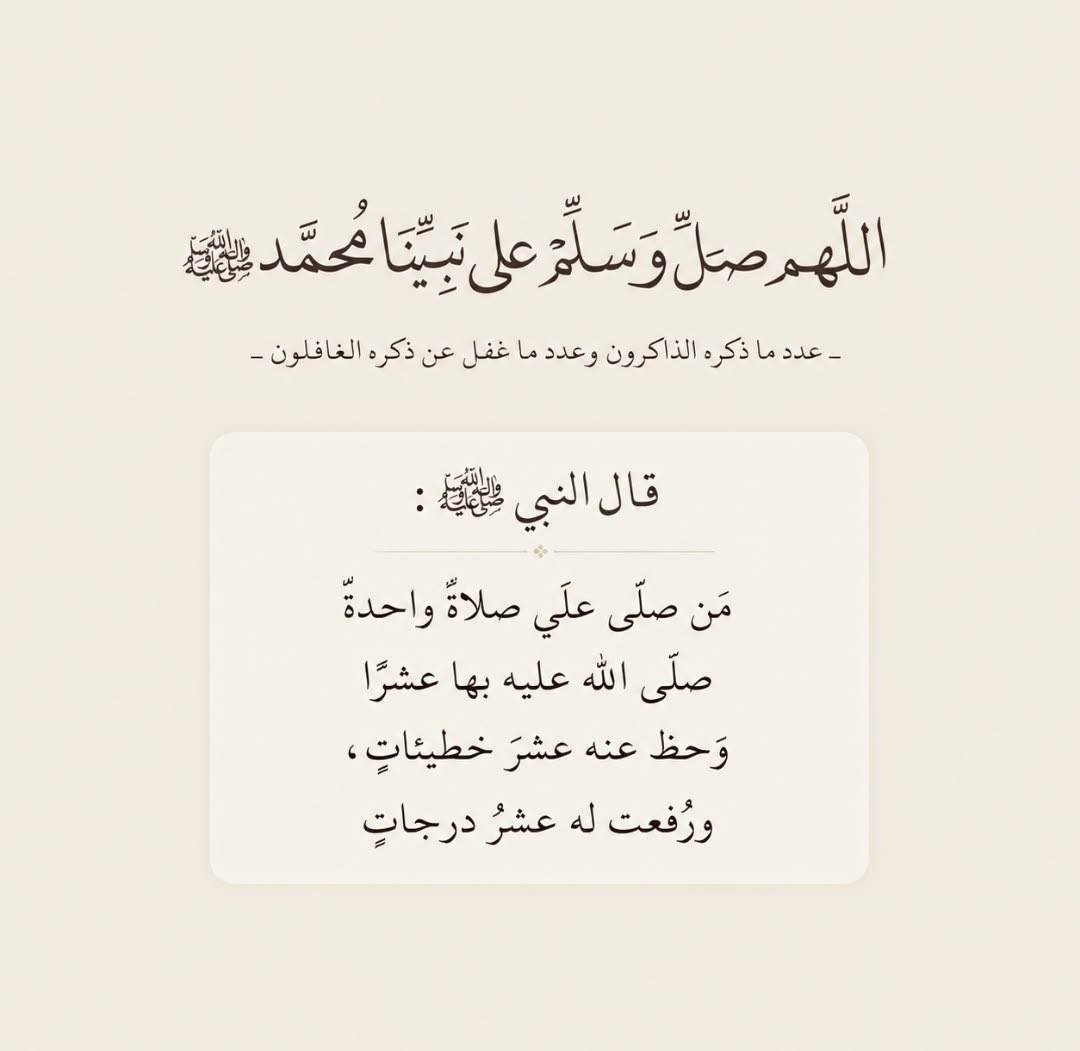 اللَّهم صَلِّ وَسَلِّمْ على نَبِيِّنَا مُحمَّد ﷺ
_ عدد ما ذكره الذاكرون وعدد ما غفل عن ذكره الغافلون _
قال النبي ﷺ :
مَن صلّى علَي صلاةً واحدةً
صلّى الله عليه بها عشرًا
وَحظ عنه عشرَ خطيئاتٍ،
ورُفعت له عشرُ درجاتٍ